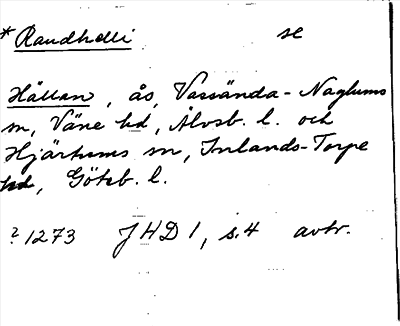 *Randhelli se
Hållan, ås, Vassända-Naglums
sn, Väne hd, Älvsb. l. och
Hjärtums sn, Inlands-Torpe
hd, Göteb. l.
? 1273 JHD 1, s. 4 avtr.